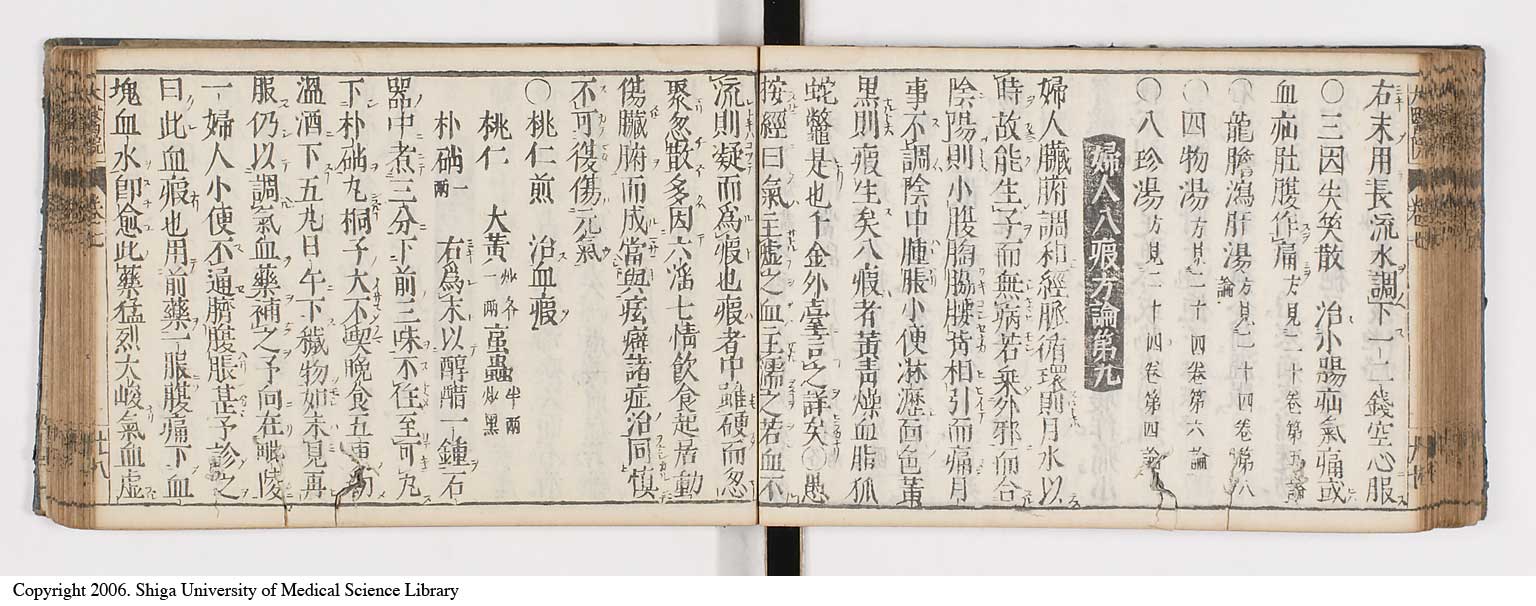 右末用長流水調下一二錢空心服
○三因失笑散　治小腸疝氣痛或
血疝肚腹作痛方見二十卷第五論
○龍膽瀉肝湯方見二十四卷第八論
○四物湯方見二十四卷第六論
○八珍湯方見二十四卷第四論
婦人八瘕方論第九
婦人臟腑調和經脈循環則月水以
時故能生子而無病若乘外邪而合
陰陽則小腹胸脇腰背相引而痛月
事不調陰中腫脹小便淋瀝面色黃
黑則瘕生矣八瘕者黃青燥血脂狐
蛇鱉是也千金外臺言之詳矣愚
按經曰氣主噓之血主濡之若血不
流則凝而爲瘕也瘕者中雖硬而忽
聚忽散多因六滛七情飲食起居動
傷臟腑而成當與痃癖諸症治同慎
不可復傷元氣
○桃仁煎　治血瘕
桃仁　大黃炒各一兩　虻蟲半兩炒黑
朴硝一兩　右爲末以醇醋一鍾石
器中煮三分下前三味不住至可丸
下朴硝丸桐子大不喫晚食五更初
溫酒下五丸日午下穢物如未見再
服仍以調氣血藥補之予向在毗陵
一婦人小便不通臍腹脹甚予診之
曰此血瘕也用前藥一服腹痛下血
塊血水卽愈此藥猛烈大峻氣血虛
Copyright 2006. Shiga University of Medical Science Library